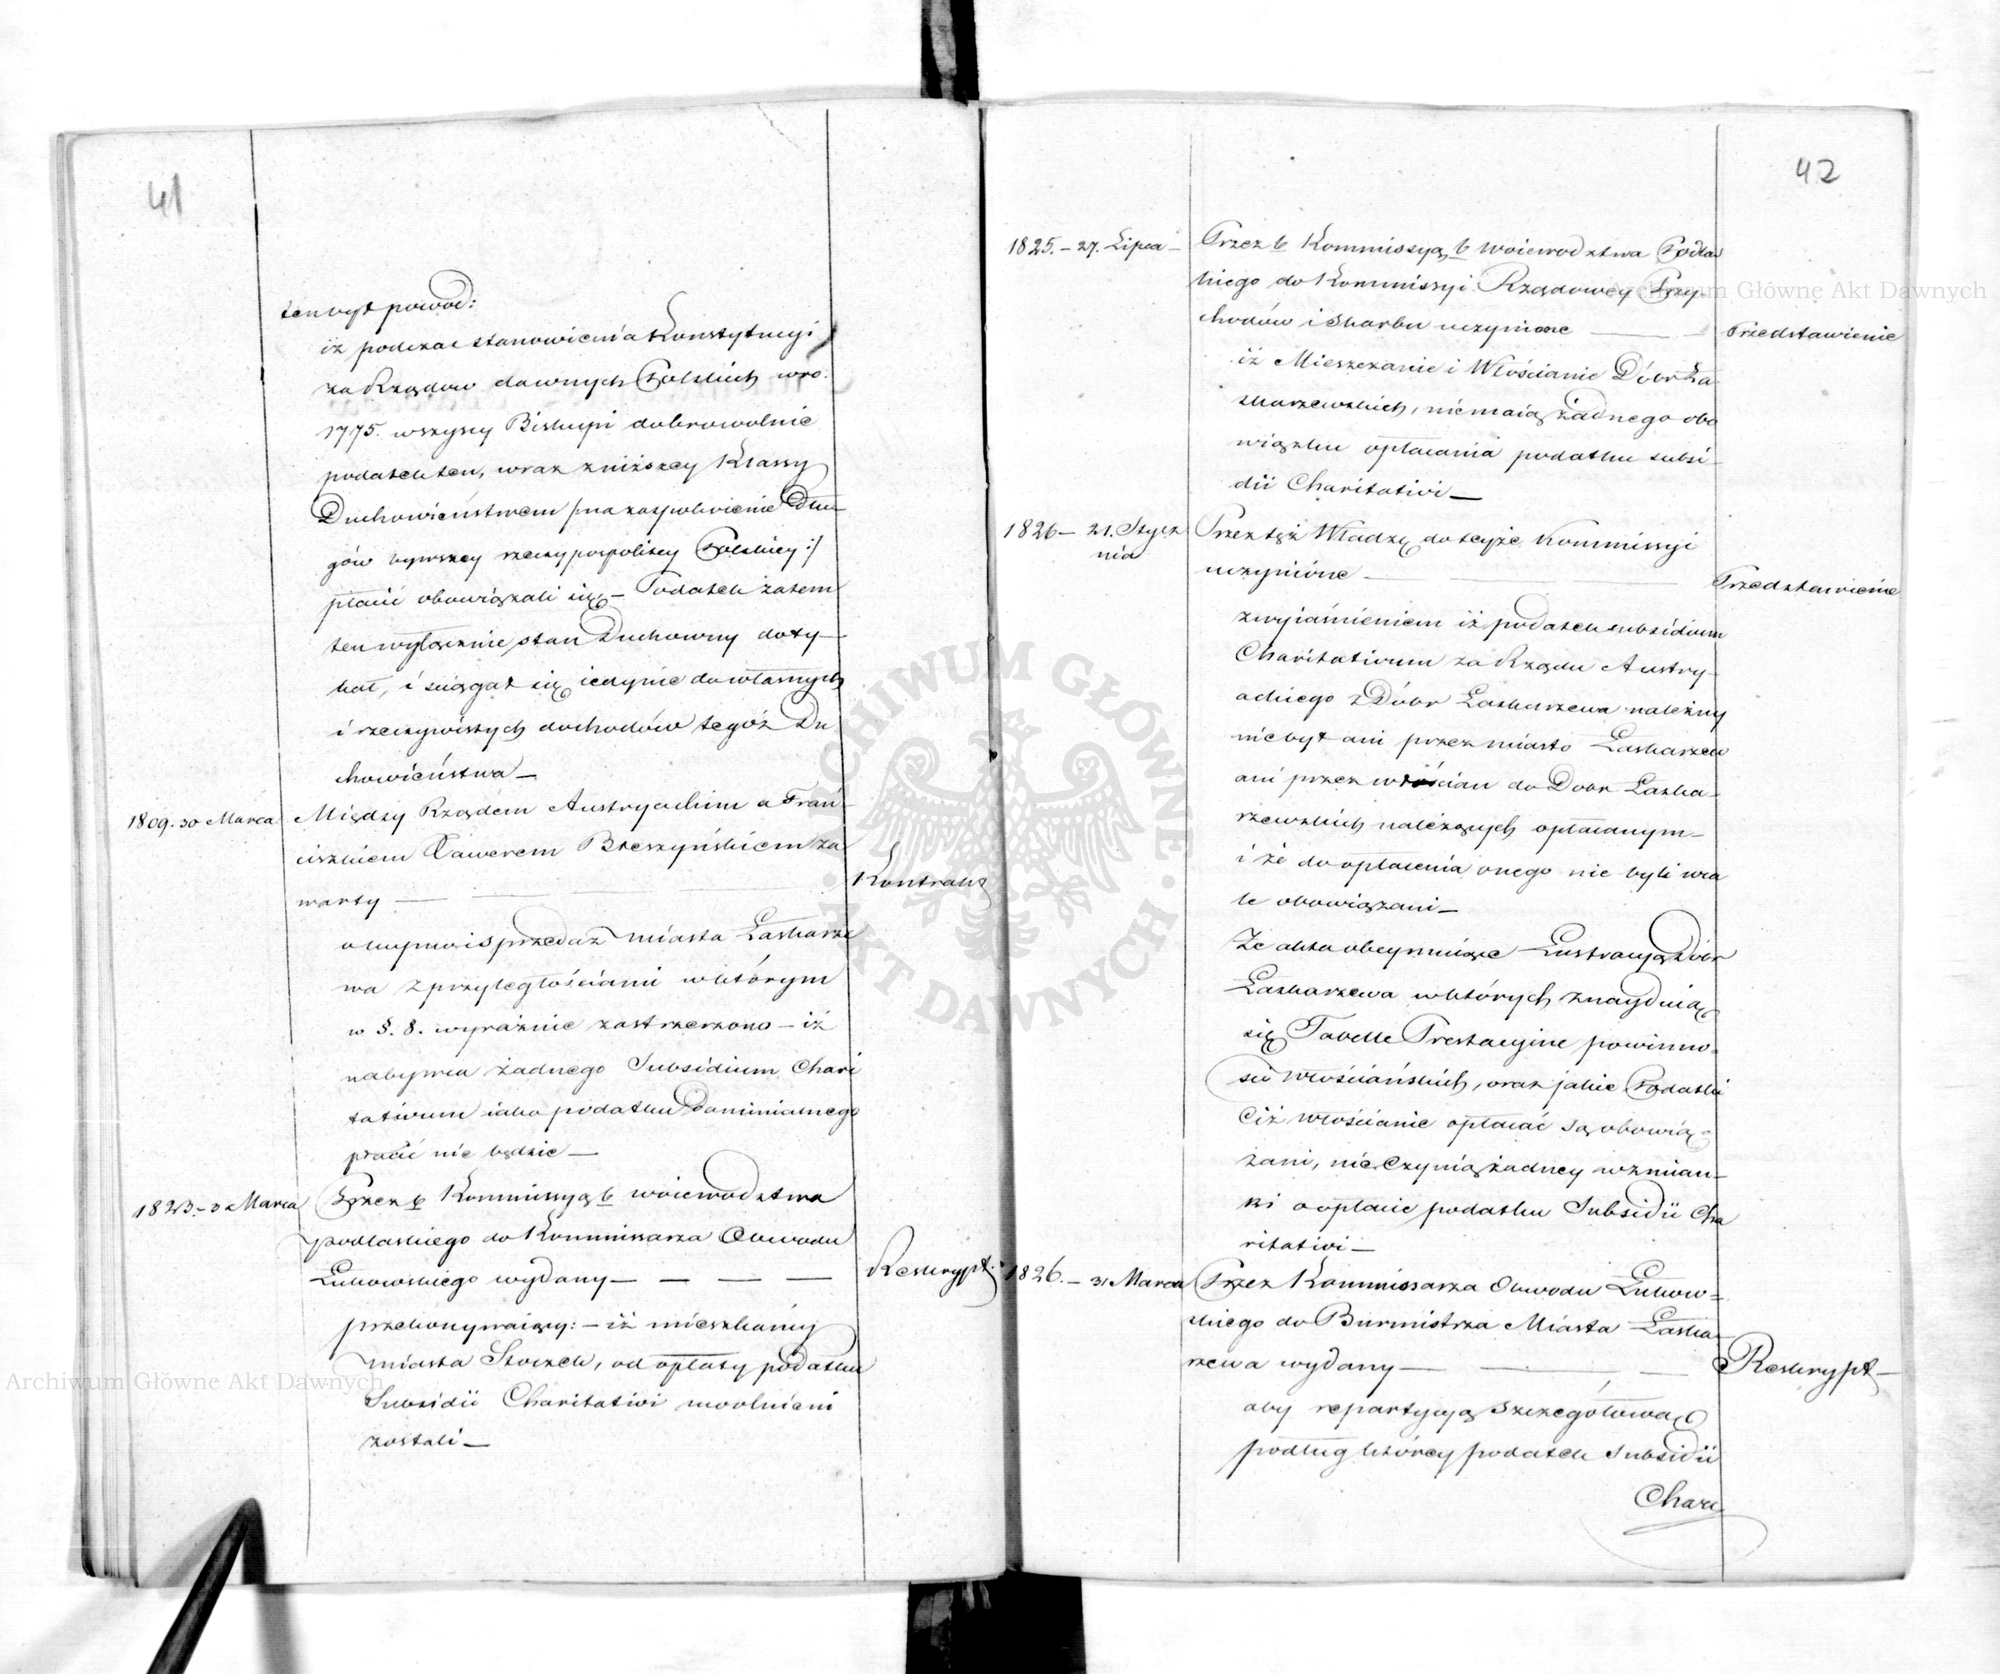 41
ten był powód:
iż podczas stanowienia Konstytucyi
za Rządów dawnych Polskich w ro.
1775. wszyscy Biskupi dobrowolnie
podatek ten, wraz z niższey Klassy
Duchowieństwem /: na zaspokoienie Dłu-
gów bywszey rzeczypospolitey Polskiey :/
płacić obowiązali się – Podatek zatem
ten wyłącznie stan Duchowny doty-
kał, i ściągał się iedynie do własnych
i rzeczywistych dochodów tegóż Du
chowieństwa –
1809. 30 Marca
Między Rządem Austryackim a Fran-
ciszkiem Xawerem Brzeszyńskiem za
warty –
Kontrakt
o kupno i sprzedaż miasta Łaskarze
wa z przyległościami w którym
w §. 8. wyraźnie zastrzeżono – iż
nabywca żadnego Subsidium Chari
tativum iako podatku Dominialnego
płacić nie będzie –
1823. – 3 Marca
Przez b Kommissyą b woiewodztwa
podlaskiego do Kommissarza Obwodu
Łukowskiego wydany –
Reskrypt.
przekonywaiący: – iż mieszkańcy
miasta Stoczek, od opłaty podatku
Subsidii Charitativi uwolnieni
zostali –
42
1825. – 27. Lipca –
Przez b Kommissyą b Woiewodztwa Podlas
kiego do Kommissyi Rządowey Przy-
chodów i Skarbu uczynione
Przedstawienie
iż Mieszczanie i Włościanie Dóbr Ła-
skarzewskich, nie maią żadnego obo
wiązku opłacania podatku subsi-
dii Charitativi –
1826 – 21. Stycz
nia
Przez też Władzę do teyże Kommissyi
uczynione –
Przedstawienie
z wyiaśnieniem iż podatek subsidium
Charitativum za Rządu Austry-
ackiego z Dóbr Łaskarzewa należny
nie był ani przez miasto Łaskarzew
ani przez włościan do Dobr Łaska-
rzewskich należących opłacanym –
i że do opłacenia onego nie byli wca
le obowiązani –
Że akta obeymuiące Lustracyą Dóbr
Łaskarzewa w których znayduią
się Tabelle Prestacyine powinno-
ści włościańskich, oraz jakie Podatki
Ciż włościanie opłacać są obowią-
zani, nie czynią żadney wzmian-
ki o opłacie podatku Subsidii Cha
ritativi –
1826. – 31 Marca
Przez Kommissarza Obwodu Łukow-
skiego do Burmistrza Miasta Łaska-
rzewa wydany –
Reskrypt –
aby repartycyą szczegółową
podług którey podatek Subsidii
Chari
Archiwum Główne Akt Dawnych
Archiwum Główne Akt Dawnych
ARCHIWUM GŁÓWNE AKT DAWNYCH